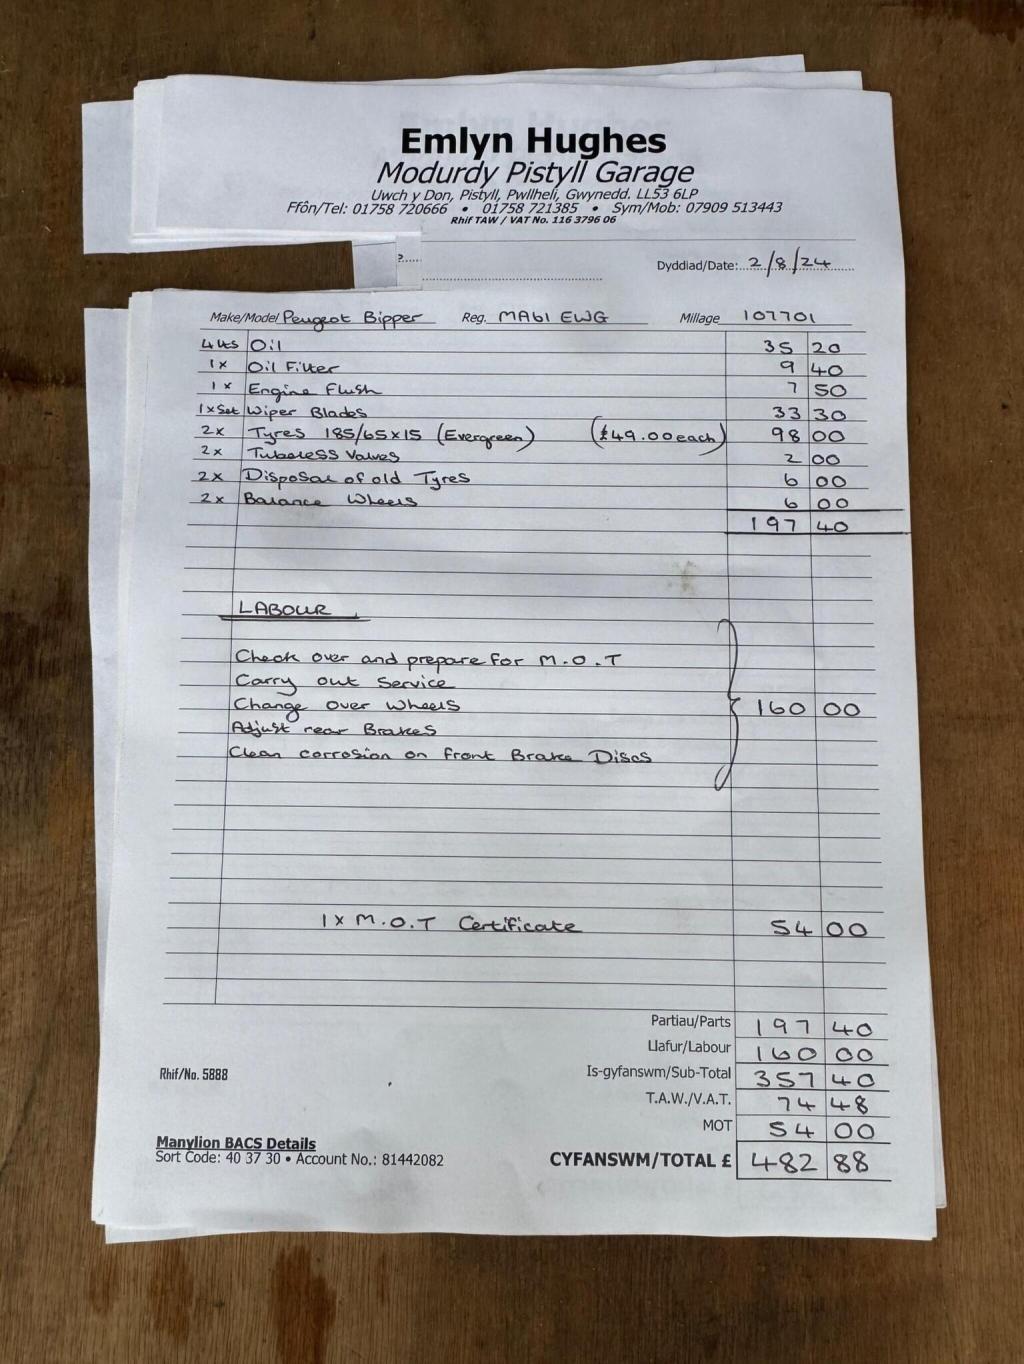 Emlyn Hughes
Modurdy Pistyll Garage
Uwch y Don, Pistyll, Pwllheli, Gwynedd. LL53 6LP
Ffôn/Tel: 01758 720666 • 01758 721385 • Sym/Mob: 07909 513443
Rhif TAW / VAT No. 116 3796 06
Dyddiad/Date: 2/8/24
Make/Model Peugeot Bipper Reg. MA61 EWG Millage 107701
4 Lts Oil 35 20
1x Oil Filter 9 40
1x Engine Flush 7 50
1xSet Wiper Blades 33 30
2x Tyres 185/65x15 (Evergreen) (£49.00each) 98 00
2x Tubeless Valves 2 00
2x Disposal of old Tyres 6 00
2x Balance Wheels 6 00
197 40
LABOUR
Check over and prepare for M.O.T
Carry out Service
Change over Wheels 160 00
Adjust rear Brakes
Clean corrosion on front Brake Discs
1x M.O.T Certificate 54 00
Partiau/Parts 197 40
Llafur/Labour 160 00
Is-gyfanswm/Sub-Total 357 40
T.A.W./V.A.T. 74 48
MOT 54 00
CYFANSWM/TOTAL £ 482 88
Rhif/No. 5888
Manylion BACS Details
Sort Code: 40 37 30 • Account No.: 81442082